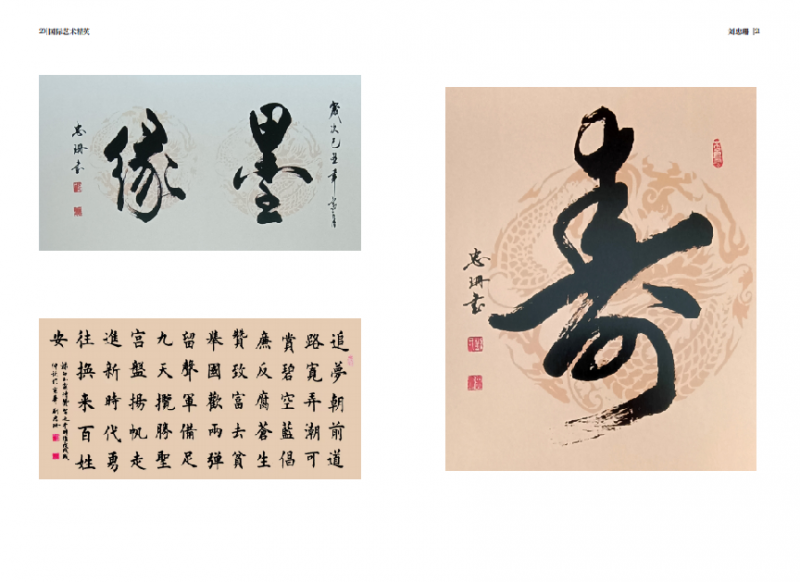 国际艺术精英
刘忠珊
歲次己丑年
墨
緣
忠珊書
追夢朝前道
路寬弄潮可
賞碧空藍倡
廉反腐蒼生
贊致富去貧
舉國歡兩彈
留聲軍備足
九天攬勝聖
宮盤揚帆走
進新時代勇
往換来百姓
安
劉忠珊
壽
忠珊書